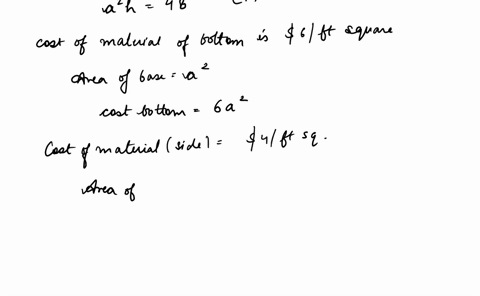 a²h = 48
cost of material of bottom is $6/ft square
Area of base = a²
cost bottom = 6a²
Cost of material (side) = $4/ft sq.
Area of